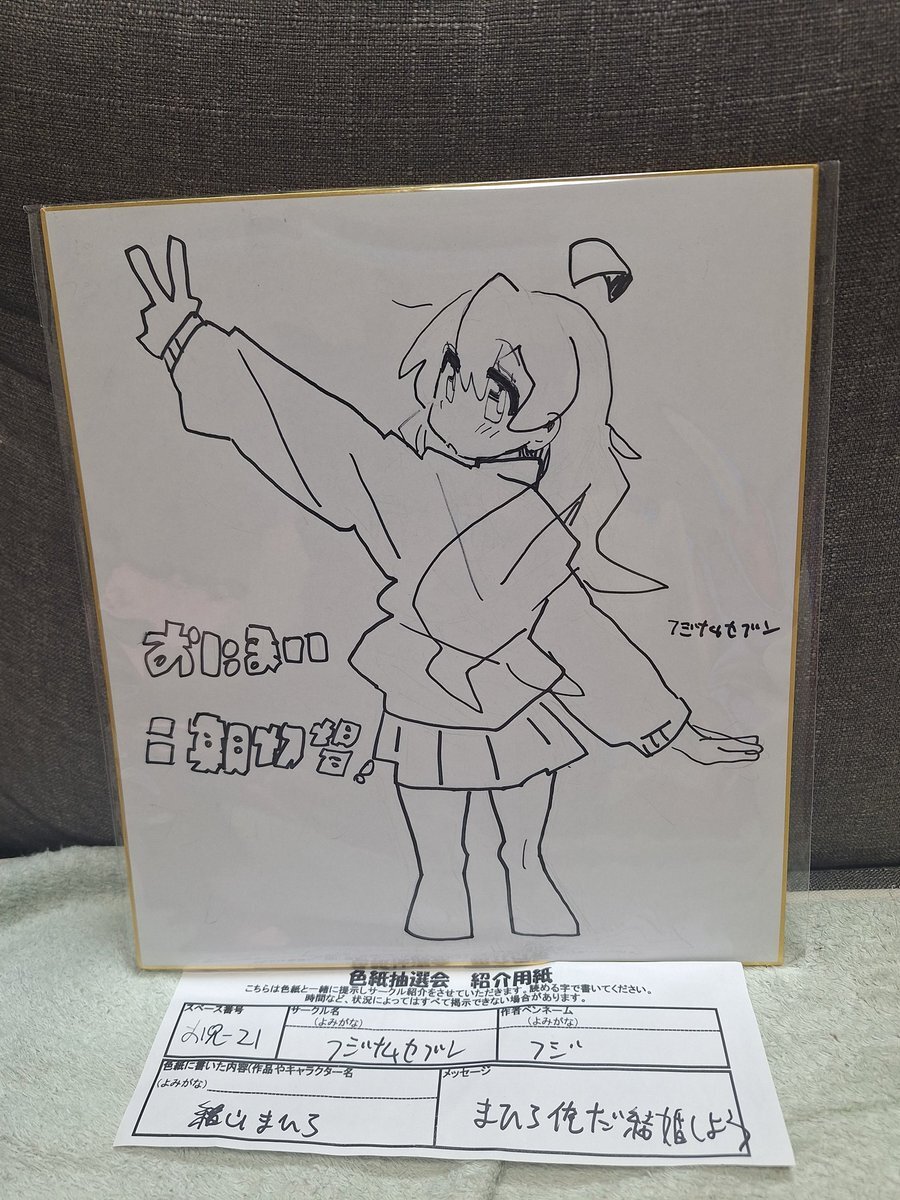 おにまい
フジナムセブン
二期切望!
色紙抽選会 紹介用紙
こちらは色紙と一緒に提示しサークル紹介をさせていただきます。読める字で書いてください。
時間など、状況によってはすべて掲示できない場合があります。
スペース番号
サークル名
(よみがな)
作者ペンネーム
(よみがな)
フジ
色紙に書いた内容(作品やキャラクター名
(よみがな)
まひろ
メッセージ
まひろ俺だ結婚しよう